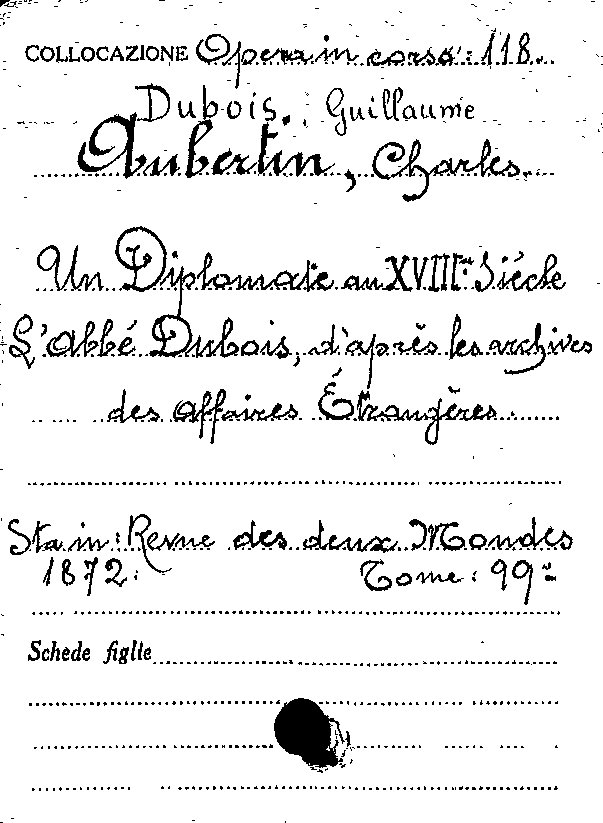 COLLOCAZIONE Opera in corso: 118.
Dubois. Guillaume
Aubertin, Charles.
Un Diplomate au XVIIIme Siécle
L'abbé Dubois, d'aprés les archives
des affaires Étrangères.
Sta in: Revue des deux Mondes
1872. Tome: 99º
Schede figlie